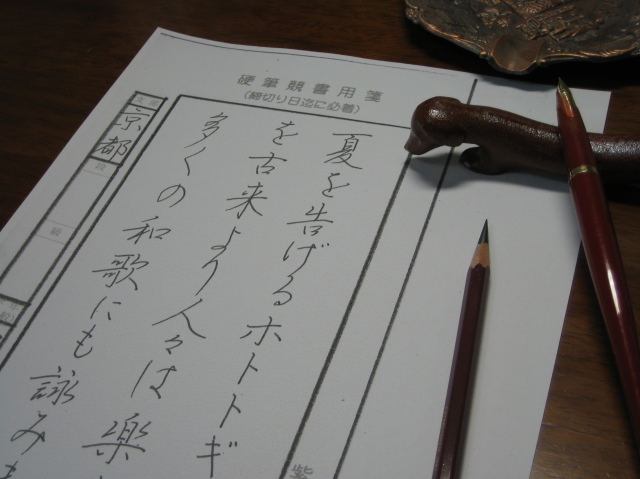 硬筆競書用箋
(締切り日迄に必着)
夏を告げるホトトギ
を古来より人々は楽
多くの和歌にも詠み
京都
段
級
紫